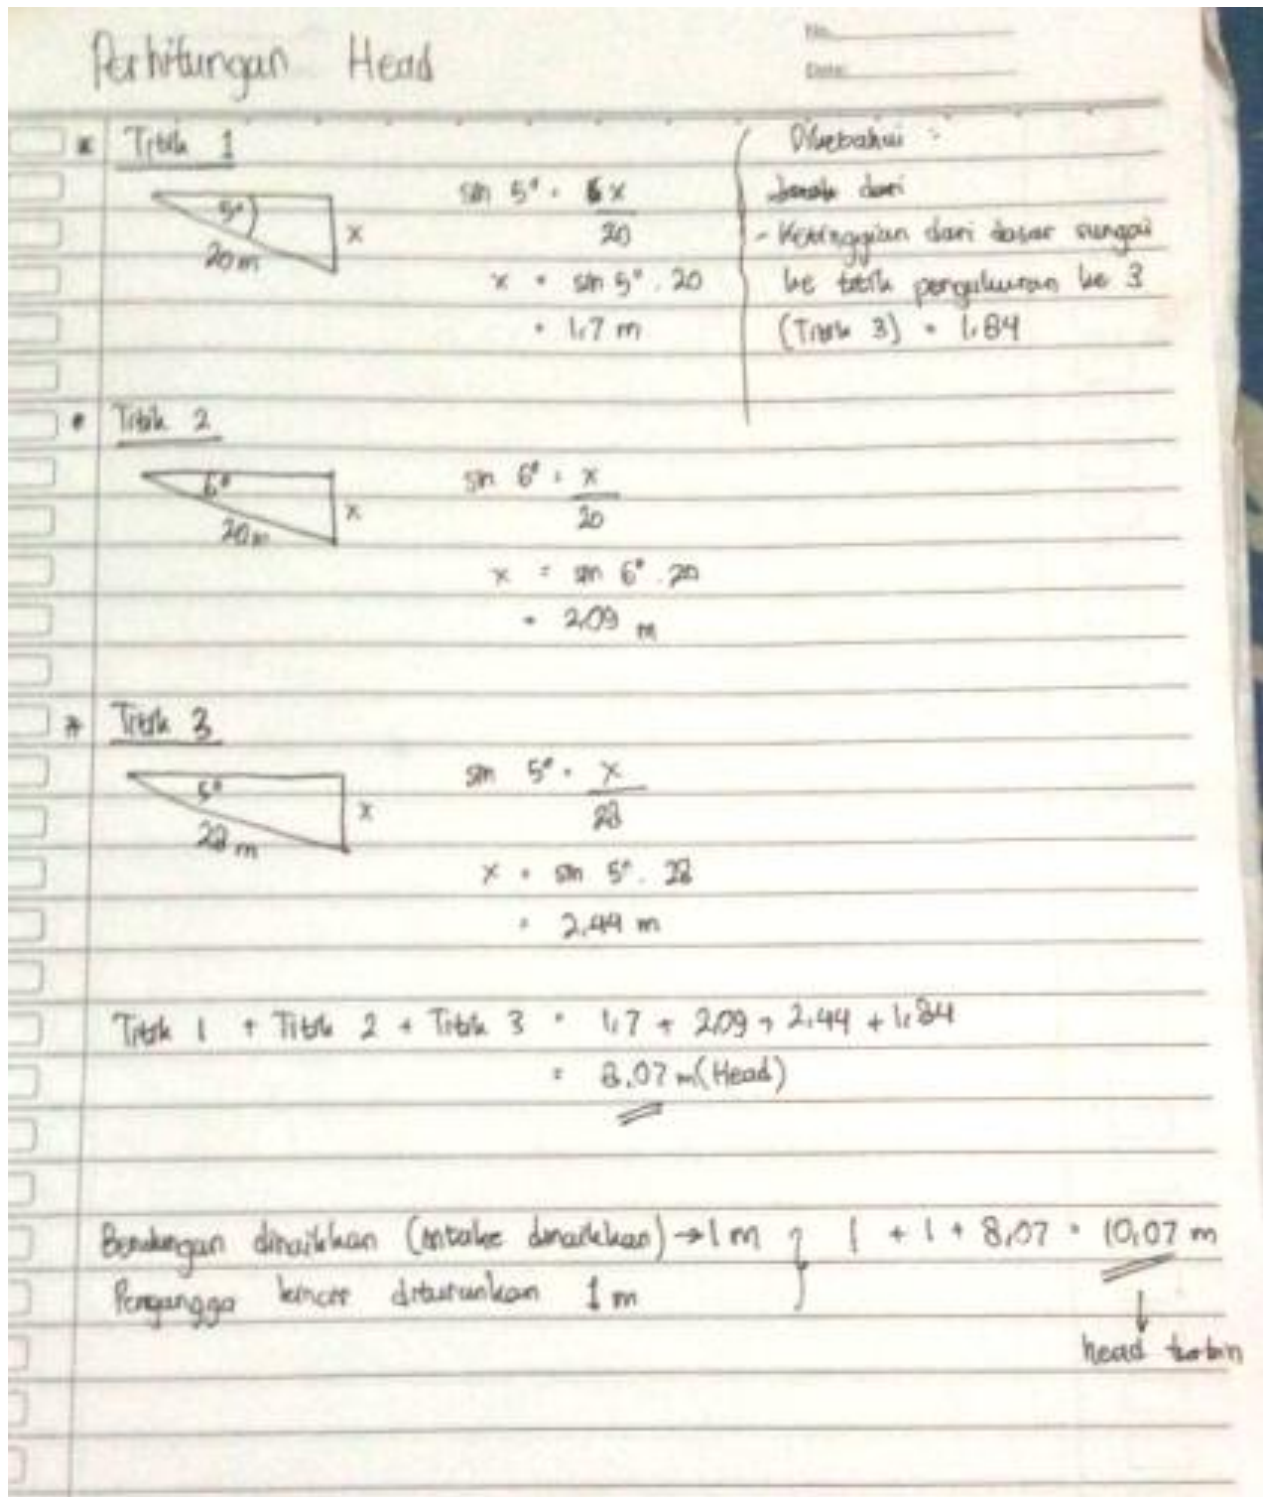 Perhitungan Head
No.
Date:
* Titik 1
5°
20 m
x
sin 5° = x
20
x = sin 5° . 20
= 1,7 m
Diketahui :
dari
- Ketinggian dari dasar sungai
ke titik pengukuran ke 3
(Titik 3) = 1,84
* Titik 2
6°
20 m
x
sin 6° = x
20
x = sin 6° . 20
= 2,09 m
* Titik 3
5°
28 m
x
sin 5° = x
28
x = sin 5° . 28
= 2,44 m
Titik 1 + Titik 2 + Titik 3 = 1,7 + 2,09 + 2,44 + 1,84
= 8,07 m (Head)
Bendungan dinaikkan (intake dinaikkan) → 1 m } 1 + 1 + 8,07 = 10,07 m
diturunkan 1 m
↓
head turbin